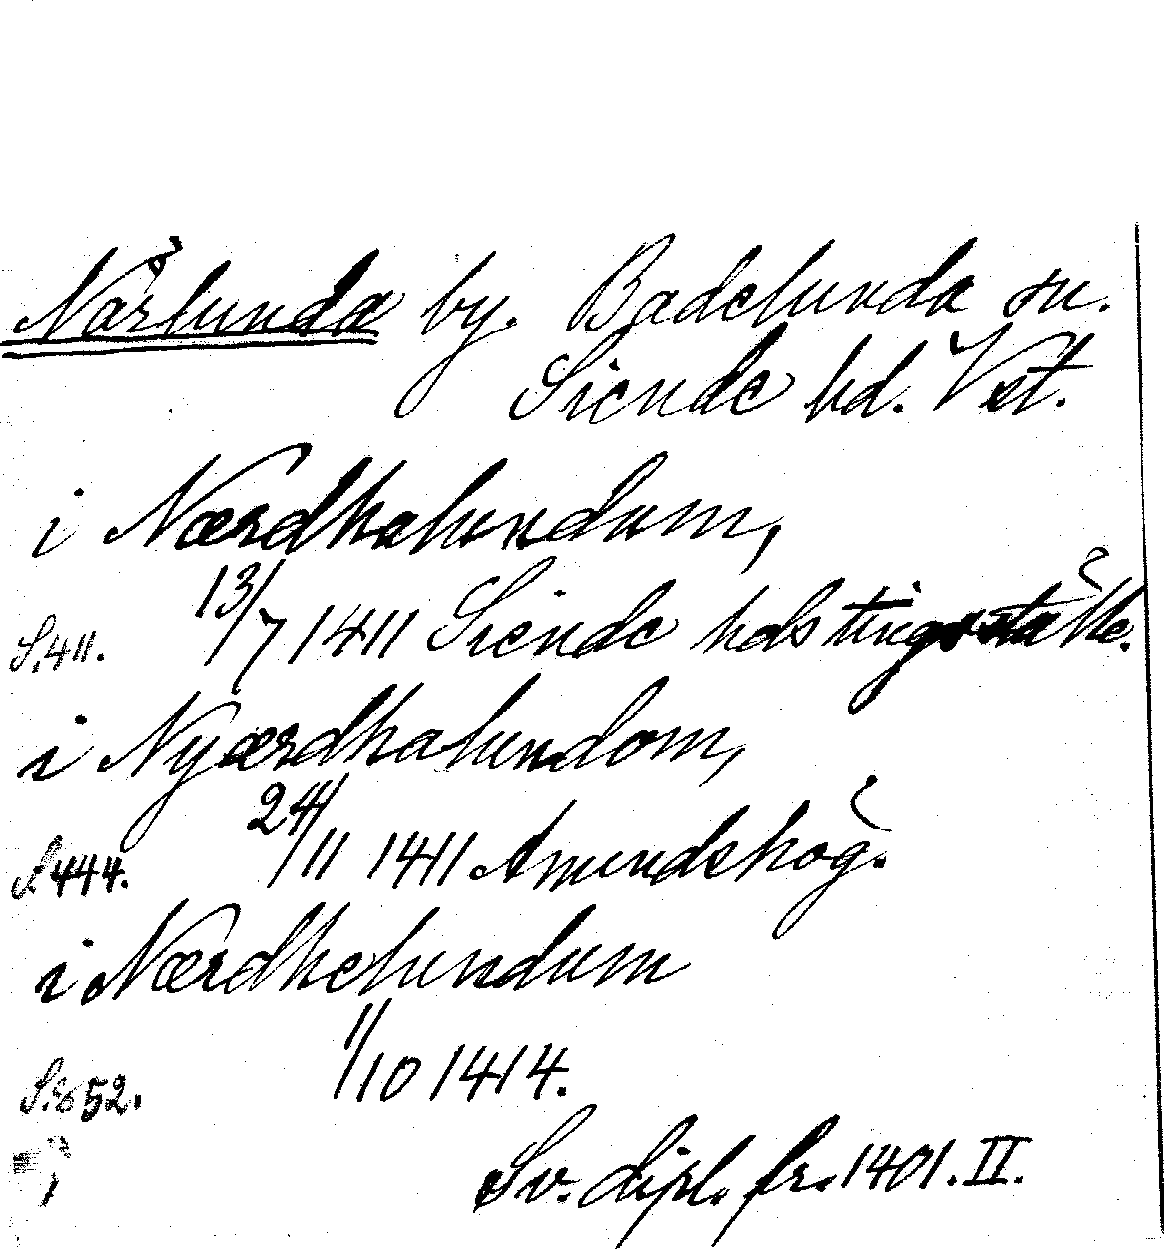 Närlunda by. Badelunda sn.
Siende hd. Vst.
i Nærdhalundum,
13/7 1411 Siende hds tingsställe.
S. 411.
i Nyærdhalundom,
24/11 1411 Amundshög.
S. 444.
i Nærdhelundum
1/10 1414.
S. 852.
Sv. dipl. fr. 1401. II.